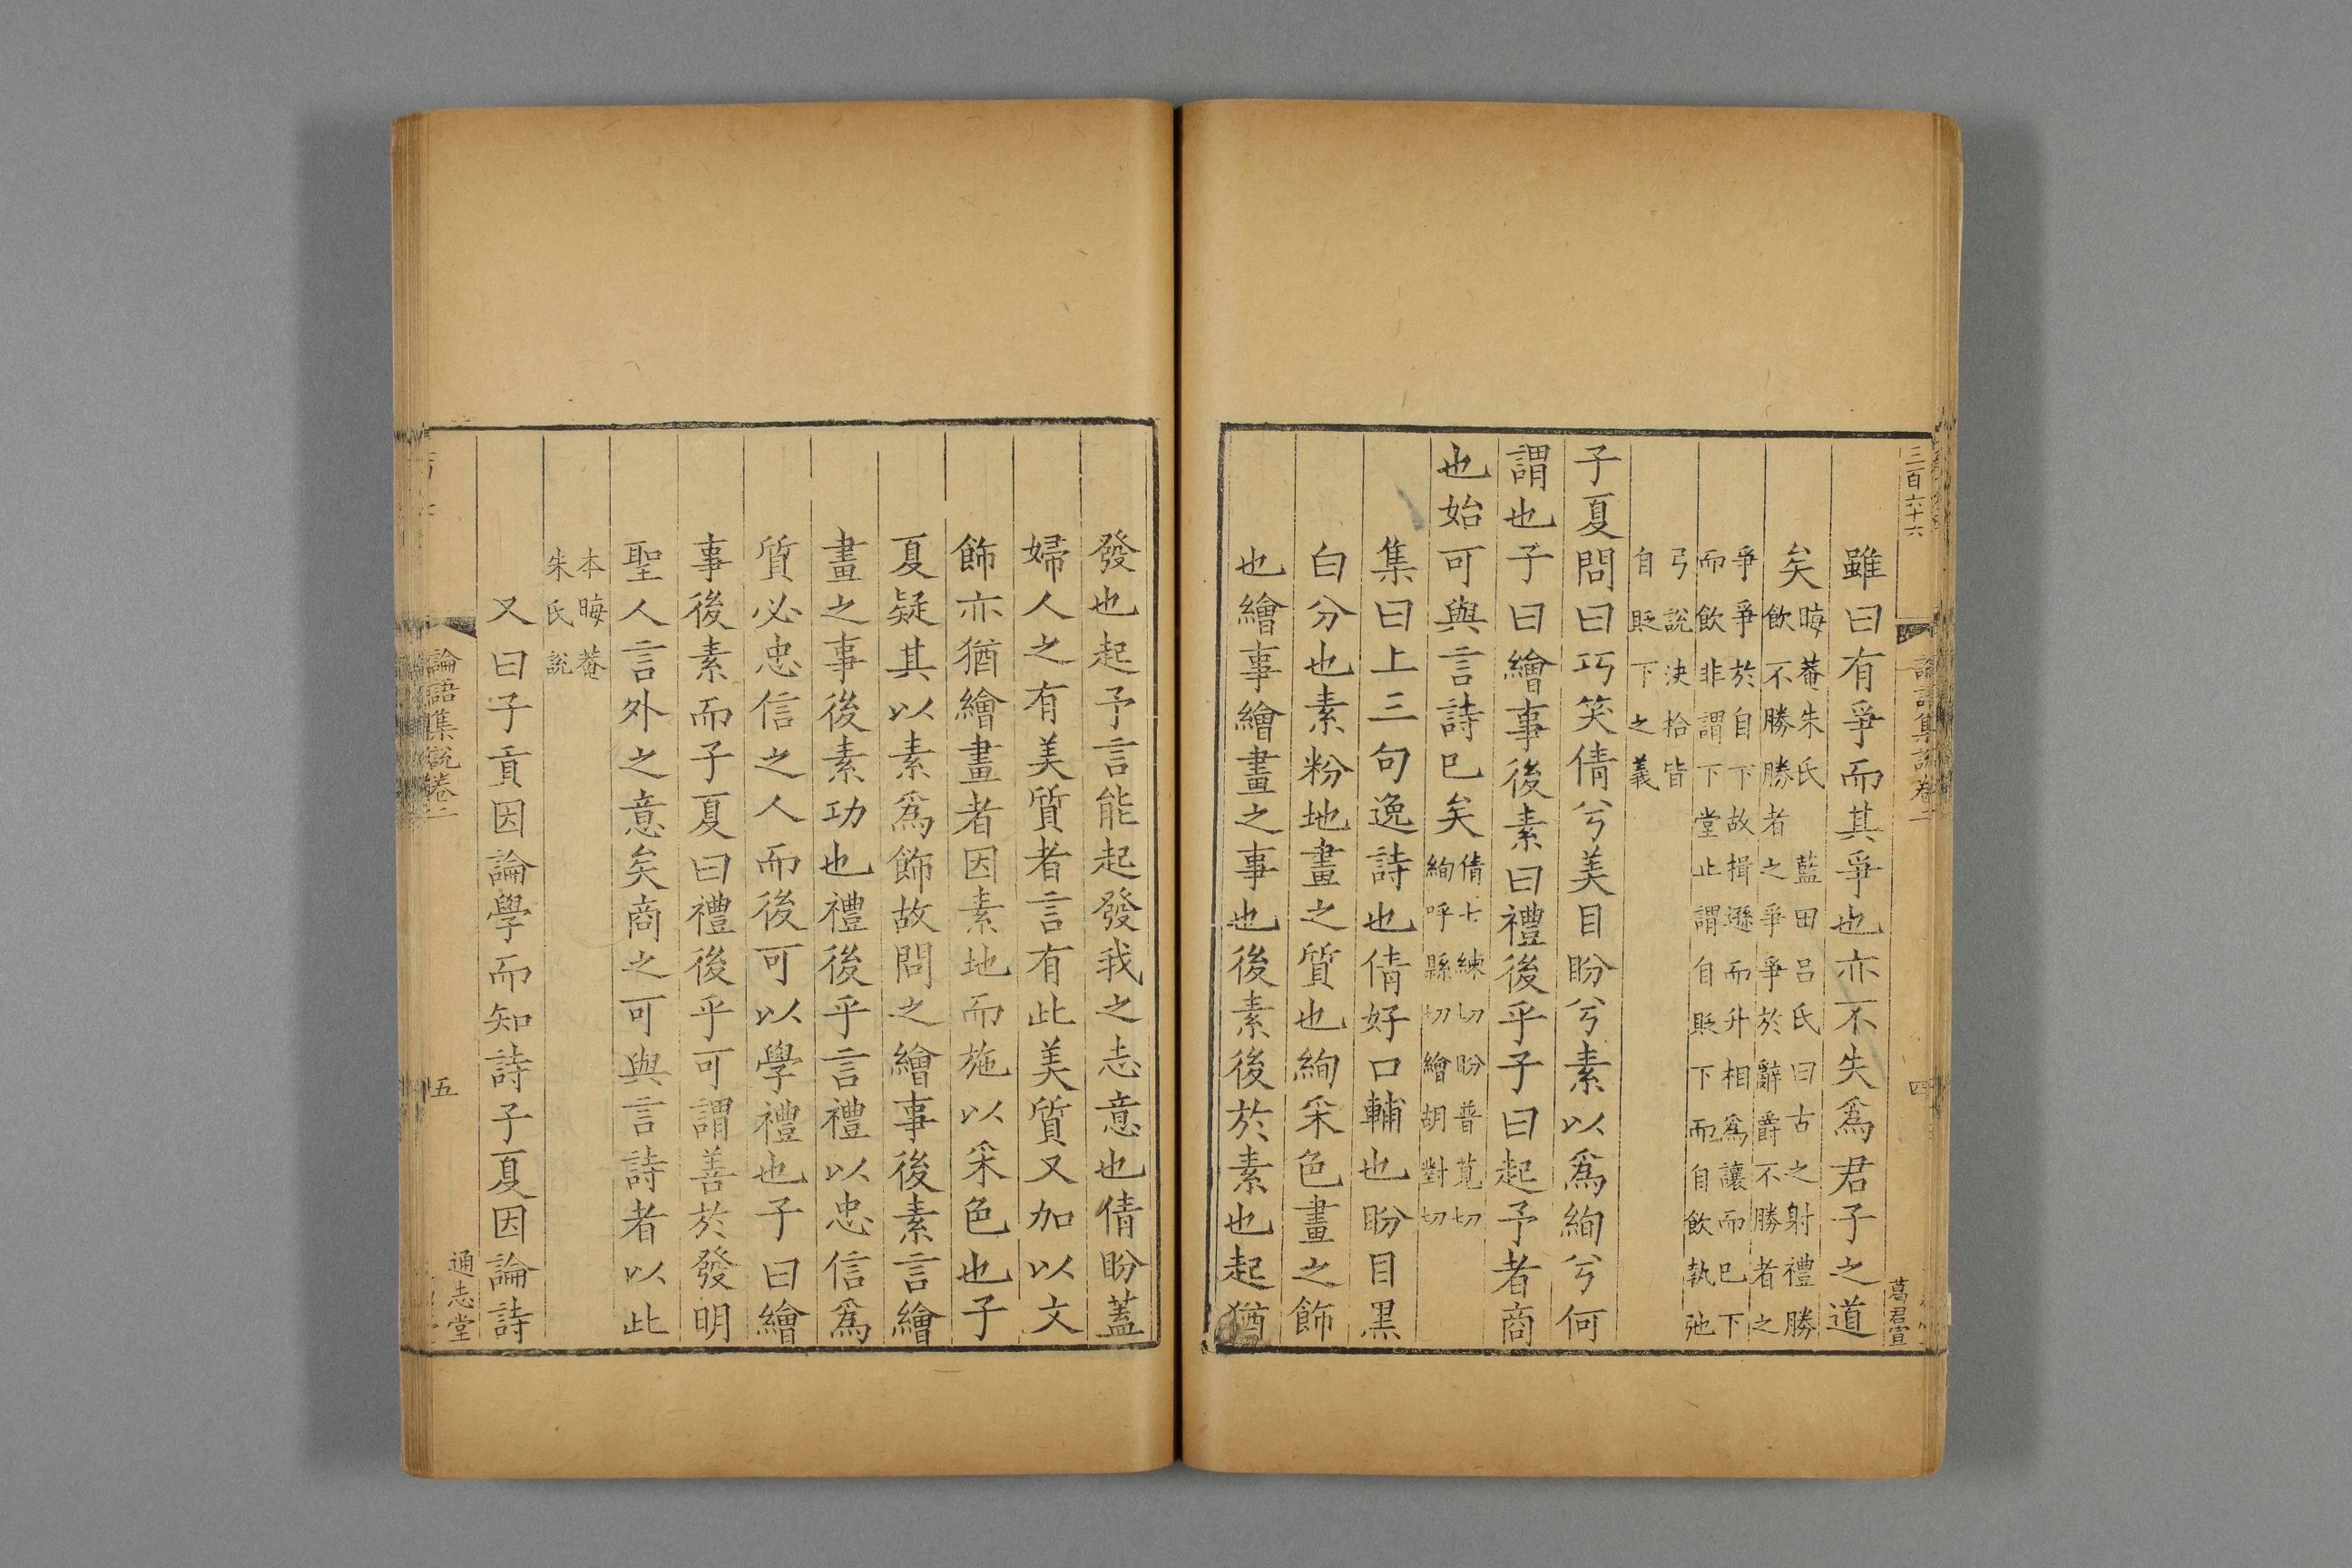 三百六十六
論語集說卷二
四
葛君宣
雖曰有爭而其爭也亦不失爲君子之道
矣
晦菴朱氏　藍田呂氏曰古之射禮勝
飲不勝勝者之爭爭於辭爵不勝者之
爭爭於自下故揖遜而升相爲讓而已下
而飲非謂下堂止謂自貶下而自飲執弛
弓說決拾皆
自貶下之義
子夏問曰巧笑倩兮美目盼兮素以爲絢兮何
謂也子曰繪事後素曰禮後乎子曰起予者商
也始可與言詩已矣
倩七練切盼普莧切
絢呼縣切繪胡對切
集曰上三句逸詩也倩好口輔也盼目黑
白分也素粉地畫之質也絢采色畫之飾
也繪事繪畫之事也後素後於素也起猶
發也起予言能起發我之志意也倩盼蓋
婦人之有美質者言有此美質又加以文
飾亦猶繪畫者因素地而施以采色也子
夏疑其以素爲飾故問之繪事後素言繪
畫之事後素功也禮後乎言禮以忠信爲
質必忠信之人而後可以學禮也子曰繪
事後素而子夏曰禮後乎可謂善於發明
聖人言外之意矣商之可與言詩者以此
本晦菴
朱氏說
又曰子貢因論學而知詩子夏因論詩
論語集說卷二
五
通志堂